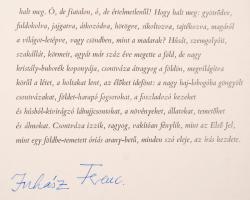 halt meg. Ó, de fiatalon, ó, de értelmetlenül! Hogy halt meg: gyötrődve,
fuldokolva, jajgatva, átkozódva, hörögve, sikoltozva, tajtékozva, magáról
a világot-letépve, vagy csöndben, mint a madarak? Héült, szomgolyóit,
szakállát, körmeit, agyát már száz éve megette a föld, de nagy
kristály-buborék koponyája, csontváza átragyog a földön, megvilágítva
köröl a létet, a holtakat lent, az élőket idefönt: a nagy haj-lobogóba göngyölt
csontvázakat, földet-harapó fogsorokat, a foszladozó kezeket
és húsból-kivirágzó lábujjcsontokat, a növényeket, állatokat, temetőket
és álmokat. Csontváza izzik, ragyog, vakítóan fénylik, mint az Első Jel,
mint egy földbe-temetett óriás arany-betű, minden szó eleje, az írás kezdete.
Juhász Ferenc